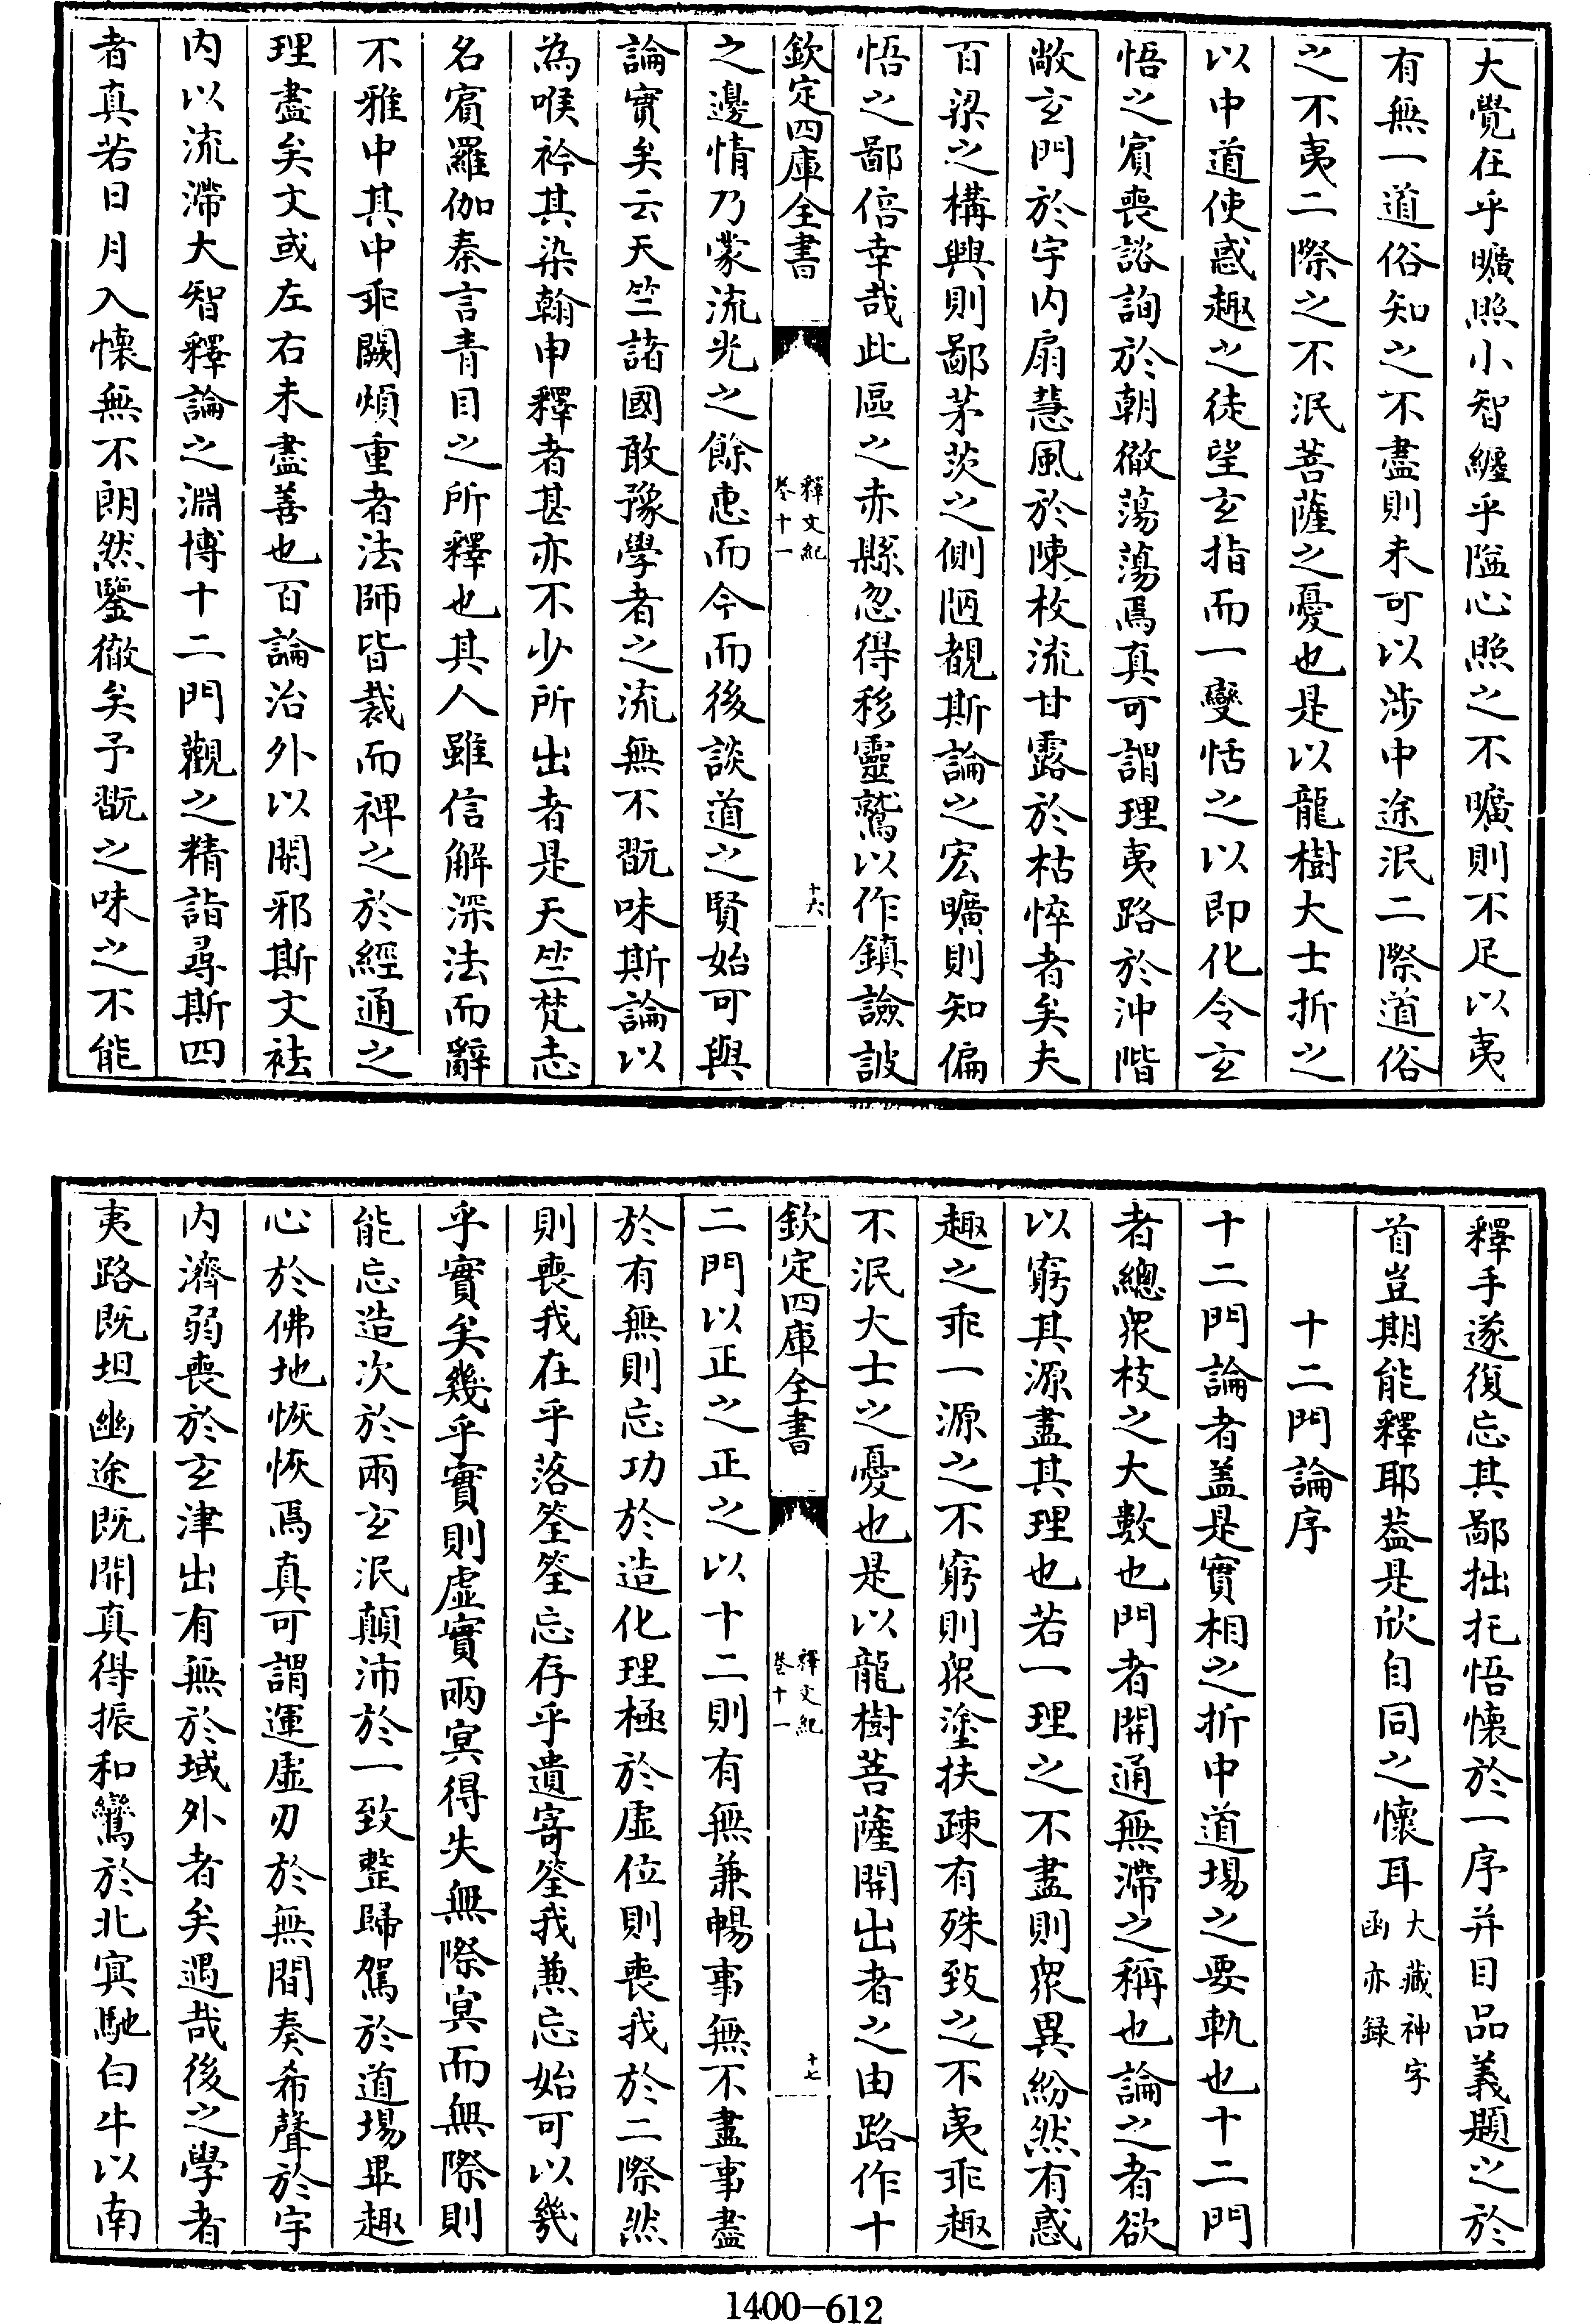 大覺在乎曠照小智纏乎隘心照之不曠則不足以夷
有無一道俗知之不盡則未可以涉中途泯二際道俗
之不夷二際之不泯菩薩之憂也是以龍樹大士折之
以中道使惑趣之徒望玄指而一變恬之以即化令玄
悟之賓喪諮詢於朝徹蕩蕩焉真可謂理夷路於沖階
敞玄門於宇内扇慧風於陳枚流甘露於枯悴者矣夫
百梁之構興則鄙茅茨之側陋覩斯論之宏曠則知偏
悟之鄙倍幸哉此區之赤縣忽得移靈鷲以作鎮險詖
欽定四庫全書
釋文紀
卷十一
十六
之邊情乃蒙流光之餘惠而今而後談道之賢始可與
論實矣云天竺諸國敢豫學者之流無不翫味斯論以
為喉衿其染翰申釋者甚亦不少所出者是天竺梵志
名賓羅伽秦言青目之所釋也其人雖信解深法而辭
不雅中其中乖闕煩重者法師皆裁而裨之於經通之
理盡矣文或左右未盡善也百論治外以閑邪斯文袪
内以流滯大智釋論之淵博十二門觀之精詣尋斯四
者真若日月入懷無不朗然鑒徹矣予翫之味之不能
釋手遂復忘其鄙拙托悟懷於一序并目品義題之於
首豈期能釋耶葢是欣自同之懷耳大藏神字
函亦録
十二門論序
十二門論者盖是實相之折中道場之要軌也十二門
者總衆枝之大數也門者開通無滯之稱也論之者欲
以窮其源盡其理也若一理之不盡則衆異紛然有惑
趣之乖一源之不窮則衆塗扶疎有殊致之不夷乖趣
不泯大士之憂也是以龍樹菩薩開出者之由路作十
欽定四庫全書
釋文紀
卷十一
十七
二門以正之正之以十二則有無兼暢事無不盡事盡
於有無則忘功於造化理極於虛位則喪我於二際然
則喪我在乎落筌筌忘存乎遺寄筌我兼忘始可以幾
乎實矣幾乎實則虛實兩冥得失無際冥而無際則
能忘造次於兩玄泯顛沛於一致整歸駕於道場畢趣
心於佛地恢恢焉真可謂運虛刃於無間奏希聲於宇
内濟弱喪於玄津出有無於域外者矣遇哉後之學者
夷路既坦幽途既開真得振和鸞於北冥馳白牛以南
1400-612